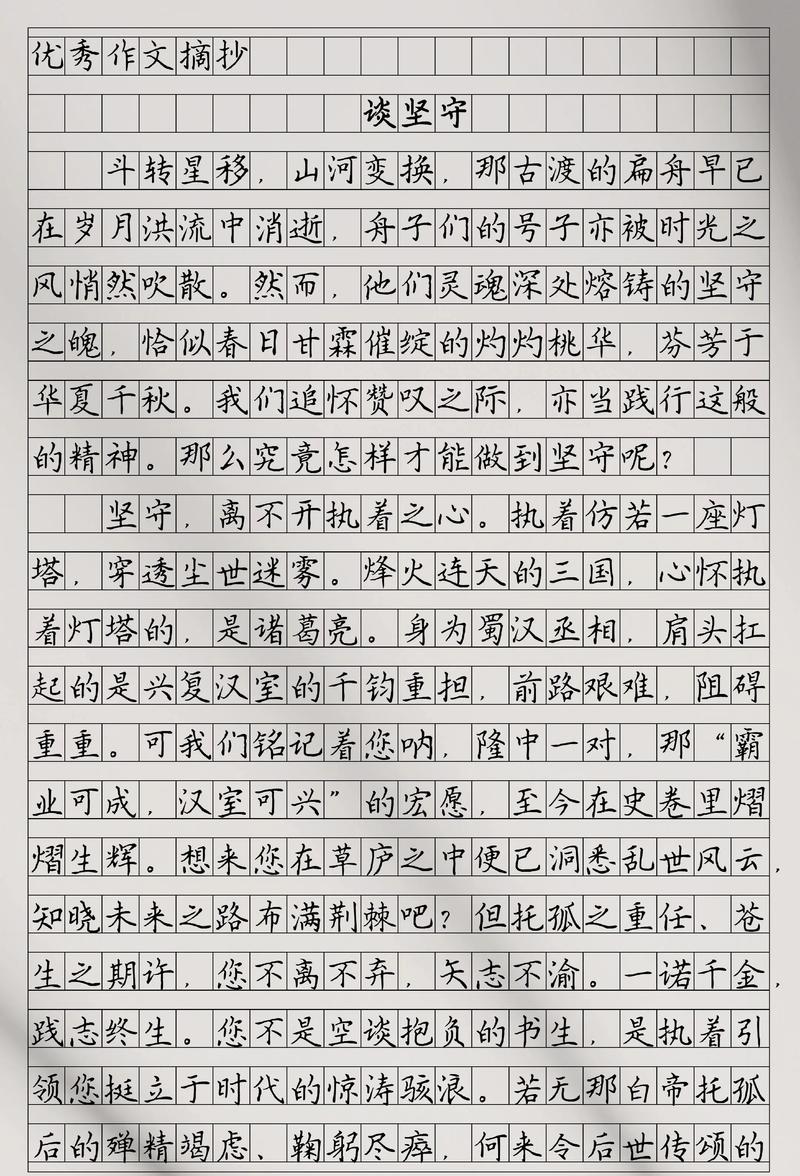 优秀作文摘抄
谈坚守
斗转星移，山河变换，那古渡的扁舟早已
在岁月洪流中消逝，舟子们的号子亦被时光之
风悄然吹散。然而，他们灵魂深处熔铸的坚守
之魄，恰似春日甘霖催绽的灼灼桃华，芬芳于
华夏千秋。我们追怀赞叹之际，亦当践行这般
的精神。那么究竟怎样才能做到坚守呢？
坚守，离不开执着之心。执着仿若一座灯
塔，穿透尘世迷雾。烽火连天的三国，心怀执
着灯塔的，是诸葛亮。身为蜀汉丞相，肩头扛
起的是兴复汉室的千钧重担，前路艰难，阻碍
重重。可我们铭记着您呐，隆中一对，那“霸
业可成，汉室可兴”的宏愿，至今在史卷里熠
熠生辉。想来您在草庐之中便已洞悉乱世风云，
知晓未来之路布满荆棘吧？但托孤之重任、苍
生之期许，您不离不弃，矢志不渝。一诺千金，
践志终生。您不是空谈抱负的书生，是执着引
领您挺立于时代的惊涛骇浪。若无那白帝托孤
后的殚精竭虑、鞠躬尽瘁，何来令后世传颂的